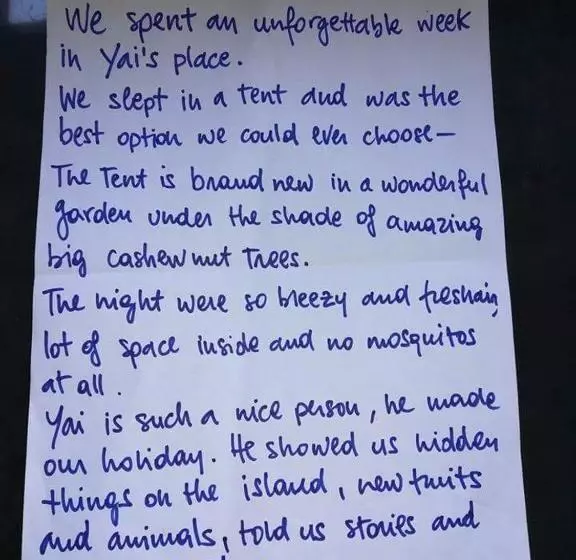 We spent an unforgettable week
in Yai's place.
We slept in a tent and was the
best option we could ever choose–
The Tent is brand new in a wonderful
garden under the shade of amazing
big cashew nut Trees.
The night were so breezy and freshair,
lot of space inside and no mosquitos
at all.
Yai is such a nice person, he made
our holiday. He showed us hidden
things on the island, new fruits
and animals, told us stories and